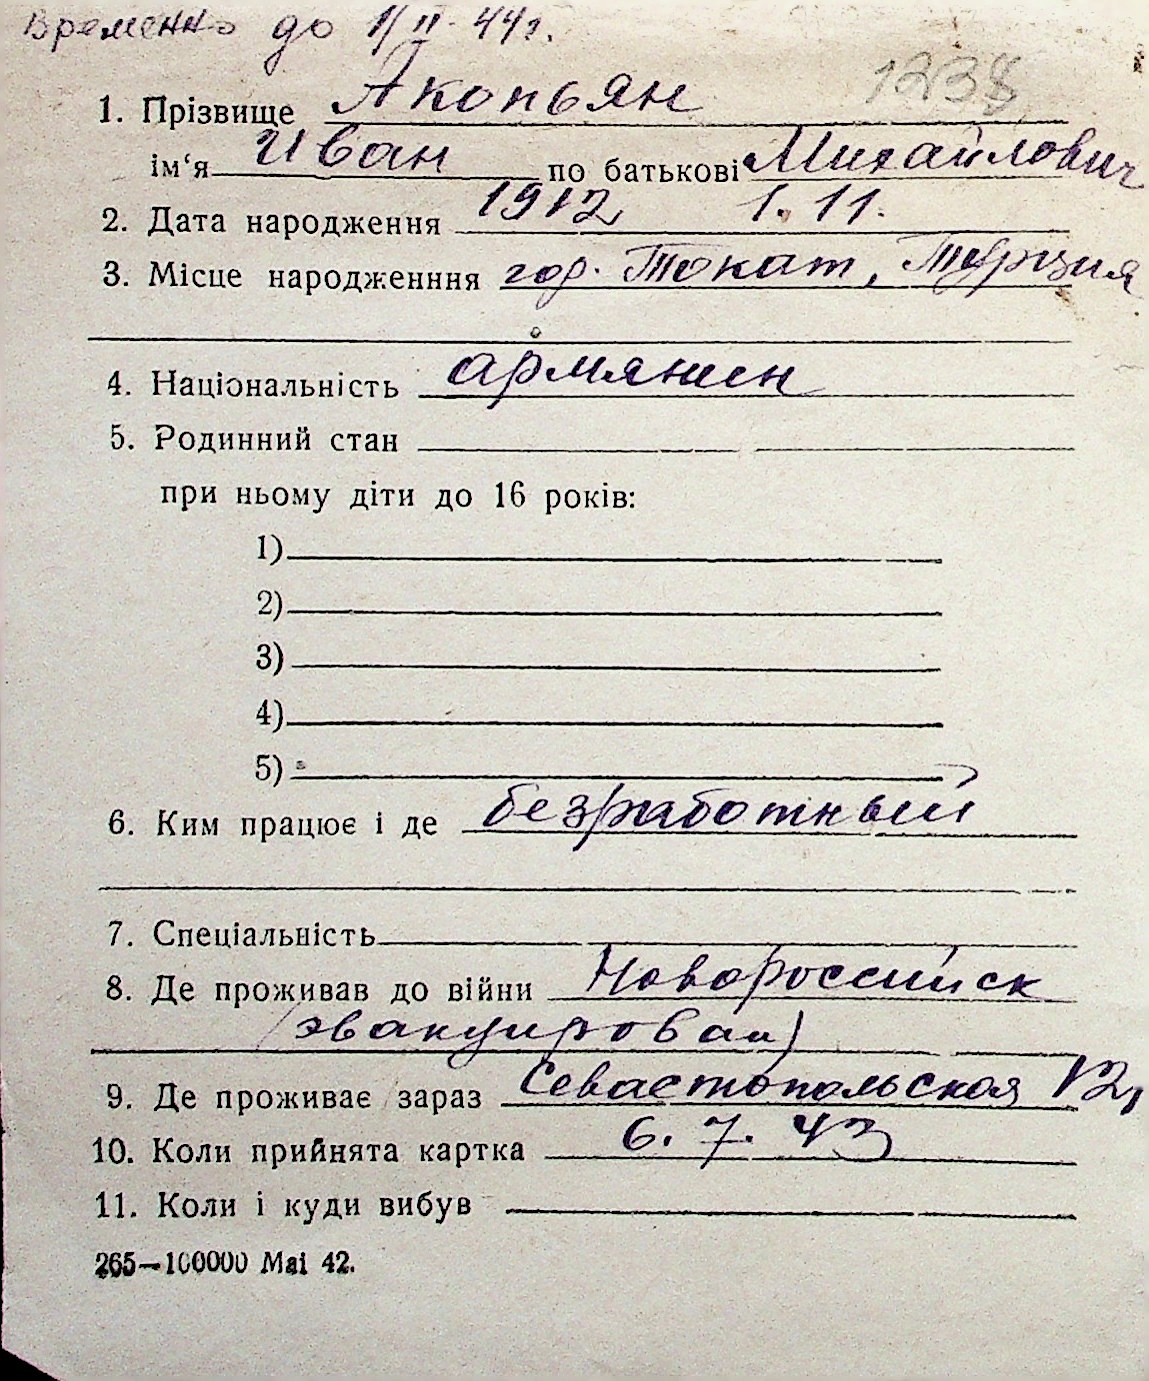 Временно до 1/II-44г.
1238
1. Прізвище Акопьян
ім‘я Иван по батькові Михайлович
2. Дата народження 1912 1.11.
3. Місце народженння гор. Токат, Турция
4. Національність армянин
5. Родинний стан
при ньому діти до 16 років:
1)
2)
3)
4)
5)
6. Ким працює і де безработный
7. Спеціальність
8. Де проживав до війни Новороссийск
(эвакуирован)
9. Де проживає зараз Севастопольская 12,
10. Коли прийнята картка 6.7.43
11. Коли і куди вибув
265—100000 Mai 42.